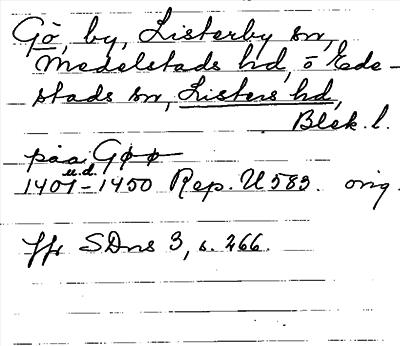 Gö, by, Listerby sn,
Medelstads hd, ö Ede-
stads sn, Listers hd,
Blek. l.
paa Gøø
u.d.
1401-1450 Rep. U 583. orig.
Jfr SDns 3, s. 266.